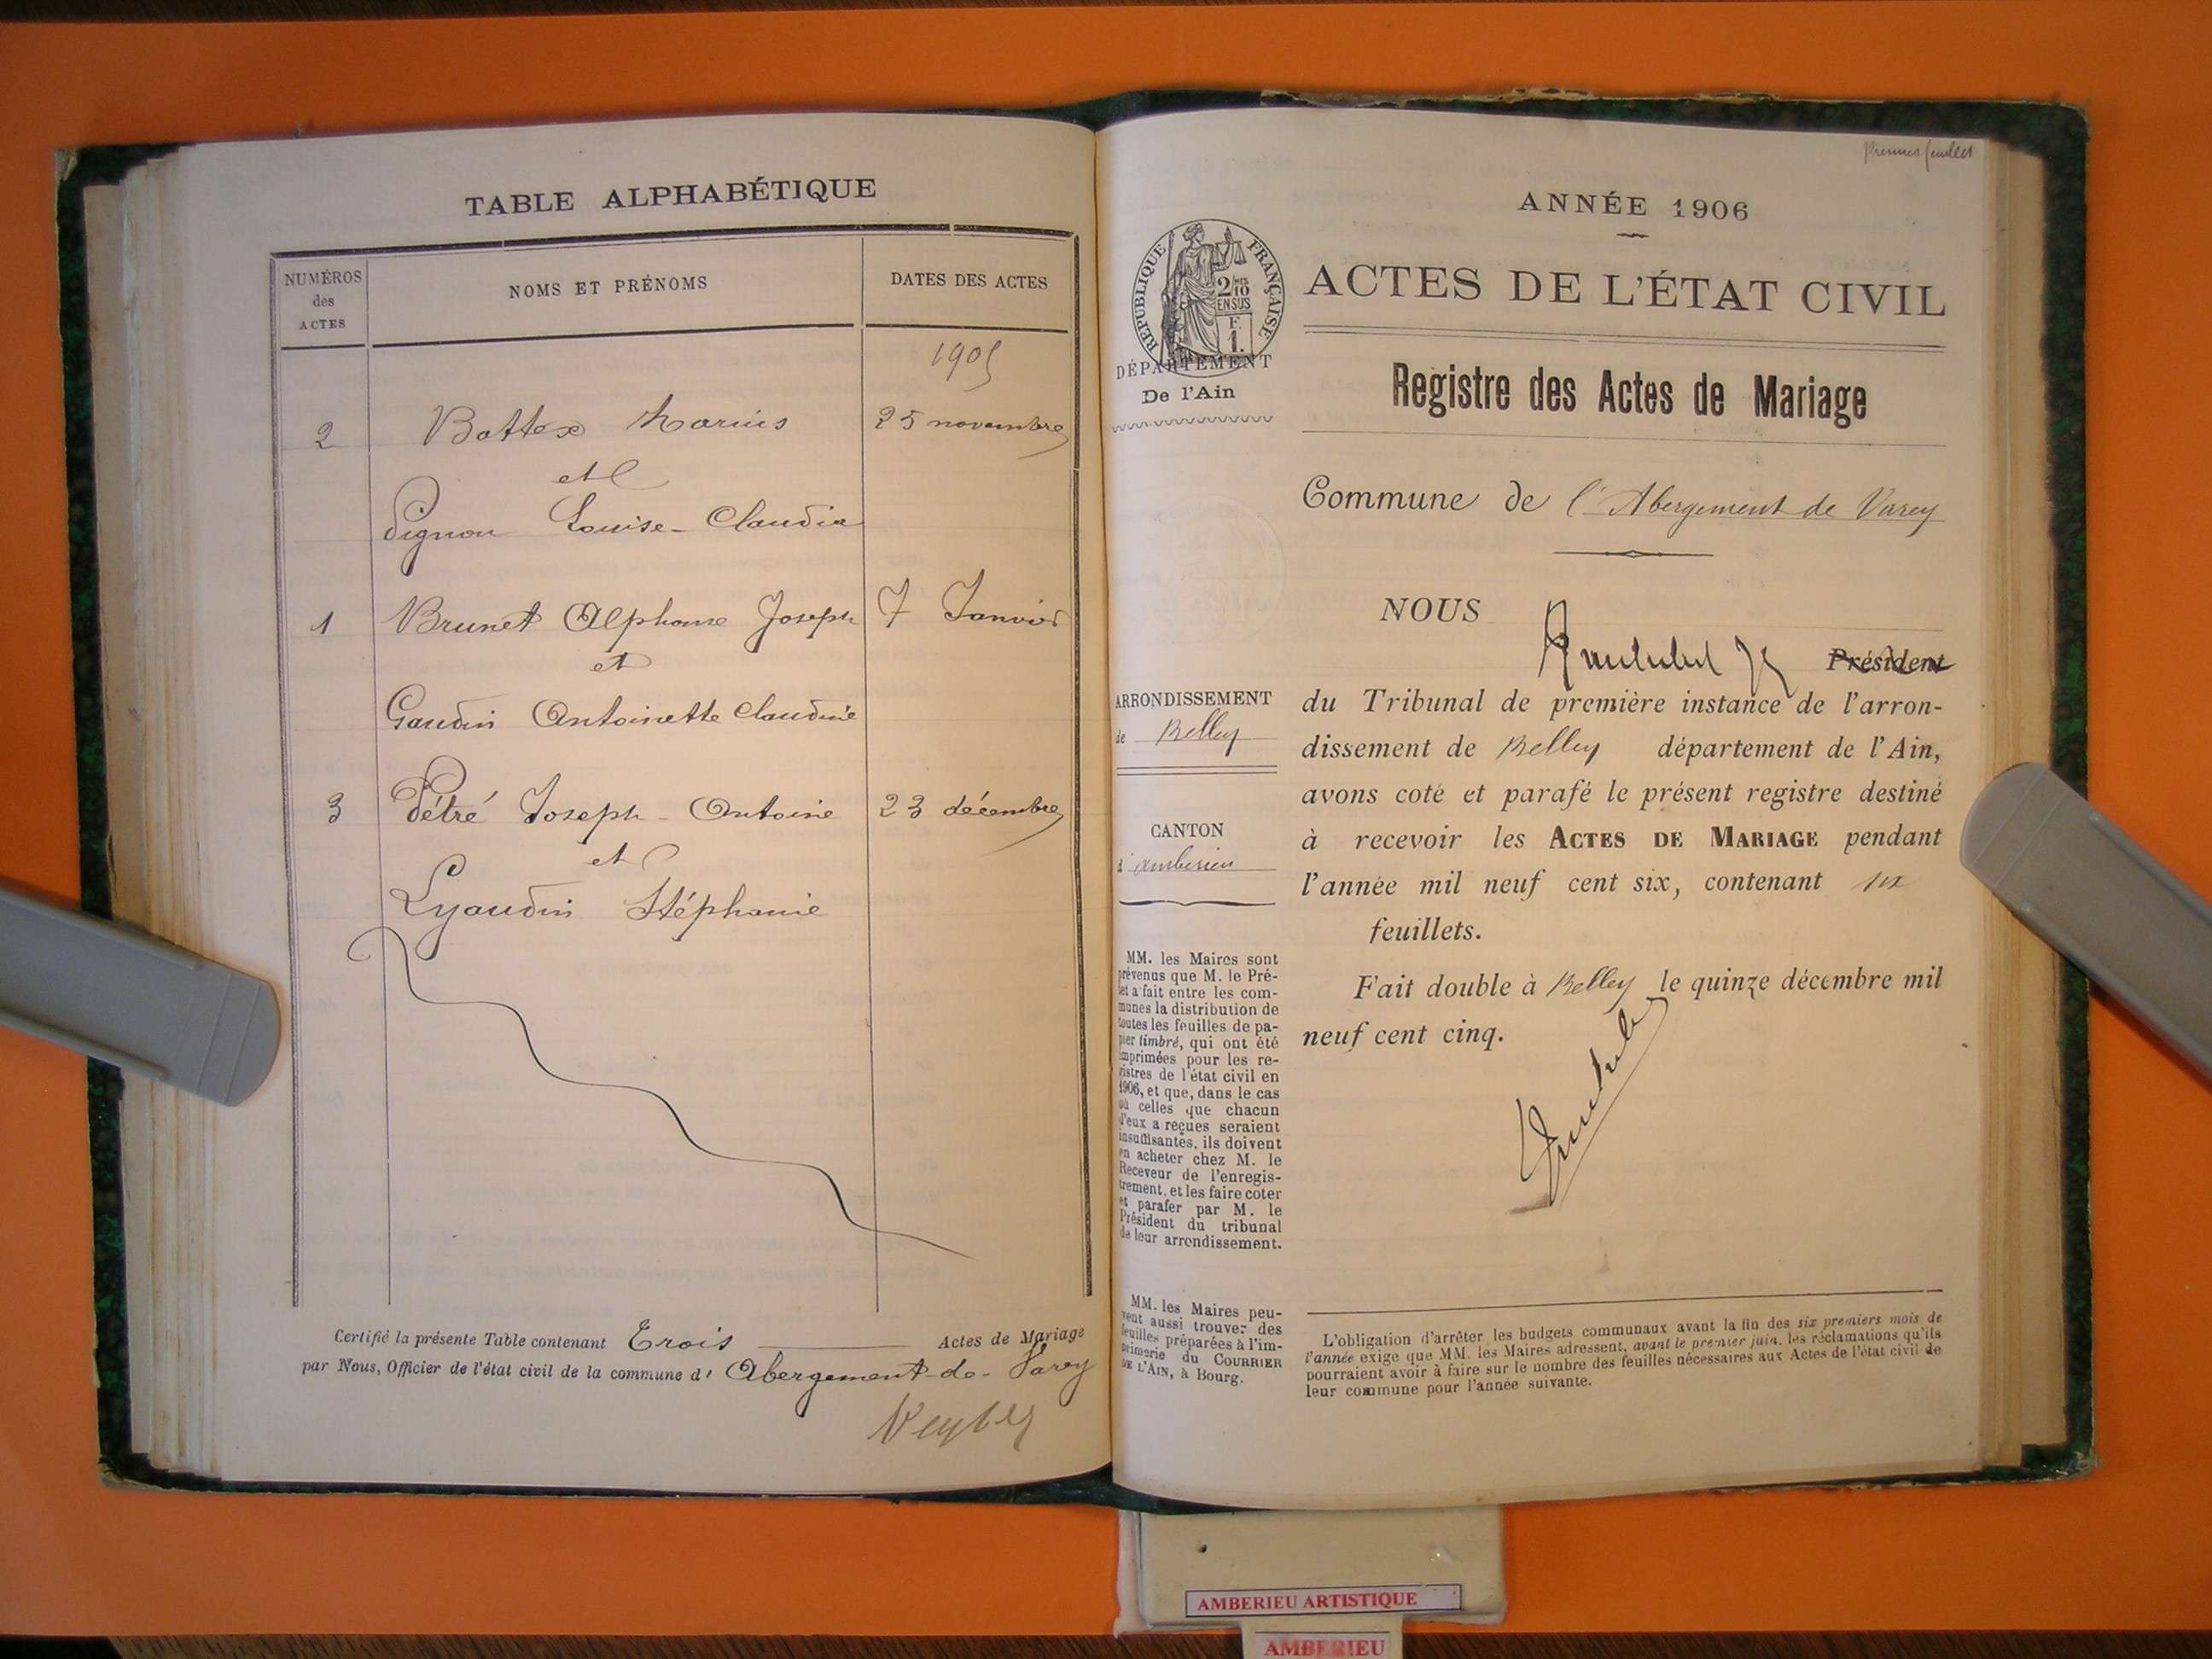 TABLE ALPHABÉTIQUE
NUMÉROS
des
ACTES
NOMS ET PRÉNOMS
DATES DES ACTES
1905
2 Bottex Marius 25 novembre
et
Pignon Louise-Claudia
1 Brunet Alphonse Joseph 7 Janvier
et
Gaudin Antoinette Claudine
3 Pétré Joseph-Antoine 23 décembre
et
Lyaudin Stéphanie
Certifié la présente Table contenant Trois Actes de Mariage
par Nous, Officier de l'état civil de la commune d' Abergement-de-Varey
Premier feuillet
ANNÉE 1906
RÉPUBLIQUE FRANÇAISE
2/10
EN SUS
F.
1.
ACTES DE L'ÉTAT CIVIL
DÉPARTEMENT
De l'Ain
Registre des Actes de Mariage
Commune de l'Abergement de Varey
NOUS
Président
ARRONDISSEMENT
de Belley
CANTON
d'ambérieu
du Tribunal de première instance de l'arron-
dissement de Belley département de l'Ain,
avons coté et parafé le présent registre destiné
à recevoir les ACTES DE MARIAGE pendant
l'année mil neuf cent six, contenant six
feuillets.
Fait double à Belley le quinze décembre mil
neuf cent cinq.
MM. les Maires sont
prévenus que M. le Pré-
fet a fait entre les com-
munes la distribution de
toutes les feuilles de pa-
pier timbré, qui ont été
imprimées pour les re-
gistres de l'état civil en
1906, et que, dans le cas
où celles que chacun
d'eux a reçues seraient
insuffisantes, ils doivent
en acheter chez M. le
Receveur de l'enregis-
trement, et les faire coter
et parafer par M. le
Président du tribunal
de leur arrondissement.
MM. les Maires peu-
vent aussi trouver des
feuilles préparées à l'im-
primerie du COURRIER
DE L'AIN, à Bourg.
L'obligation d'arrêter les budgets communaux avant la fin des six premiers mois de
l'année exige que MM. les Maires adressent, avant le premier juin, les réclamations qu'ils
pourraient avoir à faire sur le nombre des feuilles nécessaires aux Actes de l'état civil de
leur commune pour l'année suivante.
AMBERIEU ARTISTIQUE
AMBERIEU